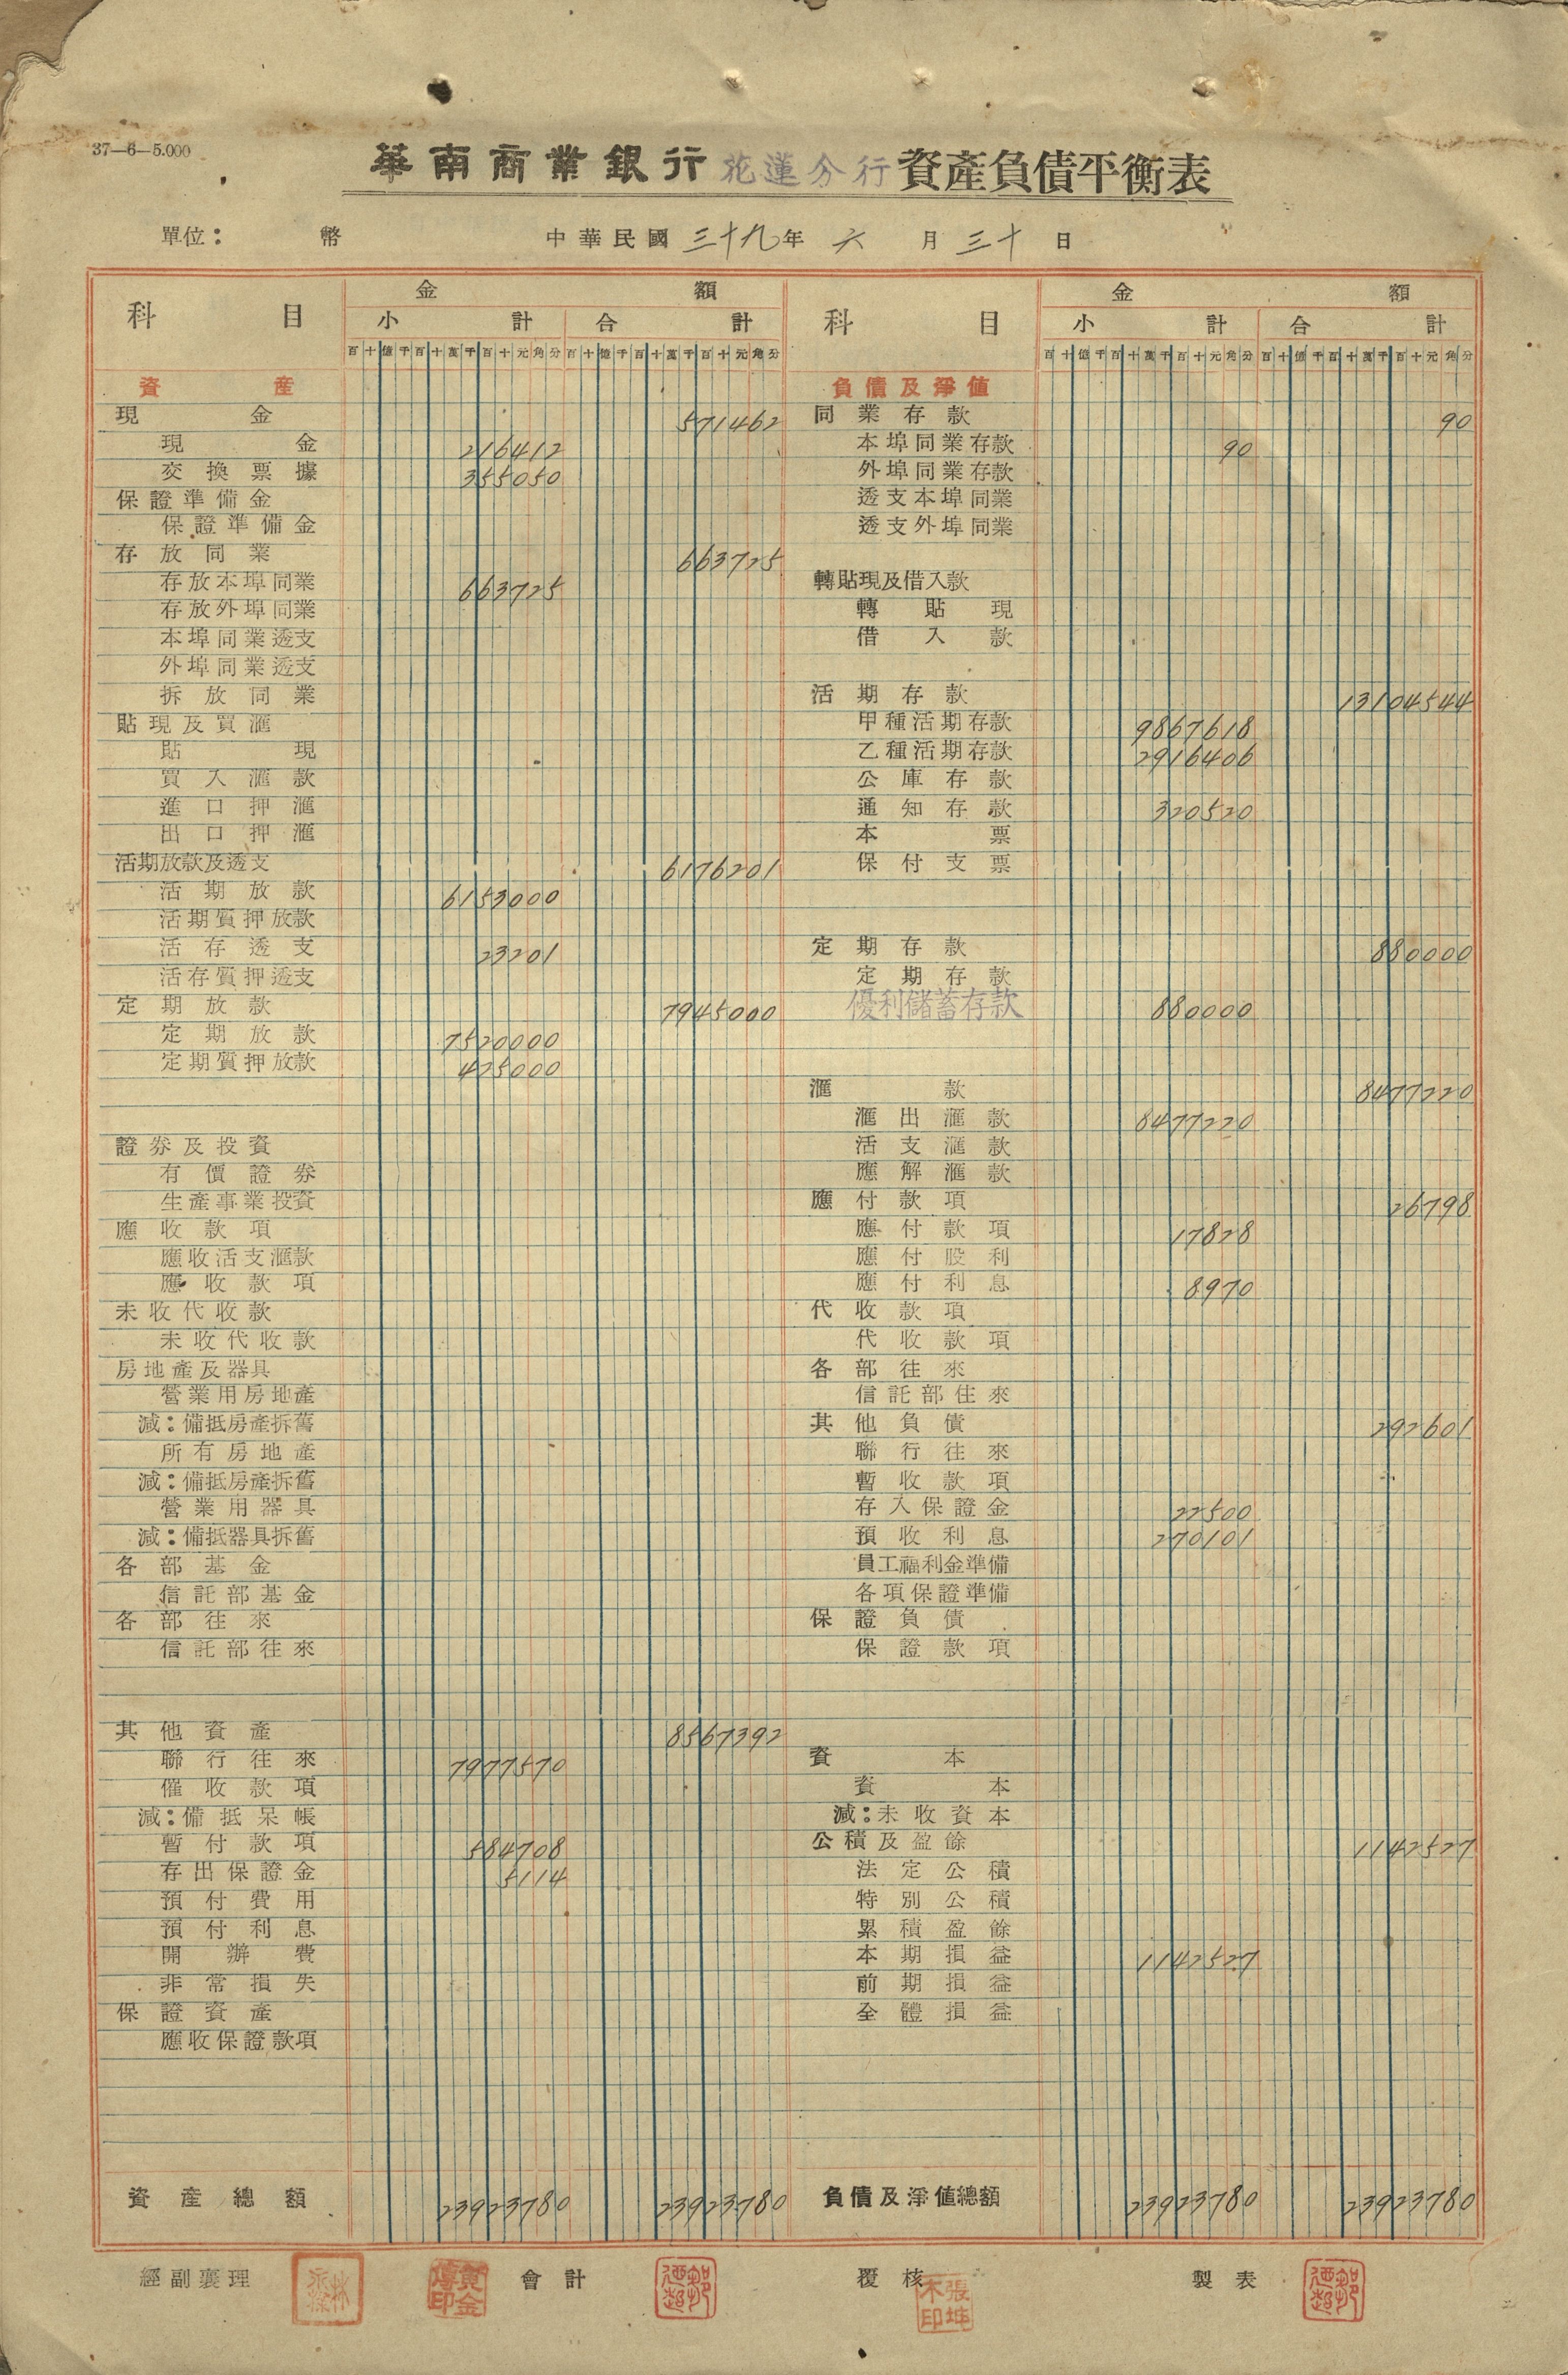 37—6—5.000
華南商業銀行花蓮分行資產負債平衡表
單位： 幣 中華民國三十九年六月三十日
科目 金額 科目 金額
小計 合計 小計 合計
百十億千百十萬千百十元角分 百十億千百十萬千百十元角分 百十億千百十萬千百十元角分 百十億千百十萬千百十元角分
資產
現金 571462
現金 216412
交換票據 355050
保證準備金
保證準備金
存放同業 663725
存放本埠同業 663725
存放外埠同業
本埠同業透支
外埠同業透支
拆放同業
貼現及買滙
貼現
買入滙款
進口押滙
出口押滙
活期放款及透支 6176201
活期放款 6153000
活期質押放款
活存透支 23201
活存質押透支
定期放款 7945000
定期放款 7520000
定期質押放款 425000
證券及投資
有價證券
生產事業投資
應收款項
應收活支滙款
應收款項
未收代收款
未收代收款
房地產及器具
營業用房地產
減：備抵房產拆舊
所有房地產
減：備抵房產拆舊
營業用器具
減：備抵器具拆舊
各部基金
信託部基金
各部往來
信託部往來
其他資產 8567392
聯行往來 7977570
催收款項
減：備抵呆帳
暫付款項 584708
存出保證金 5114
預付費用
預付利息
開辦費
非常損失
保證資產
應收保證款項
資產總額 23923780 23923780
負債及淨值
同業存款 90
本埠同業存款 90
外埠同業存款
透支本埠同業
透支外埠同業
轉貼現及借入款
轉貼現
借入款
活期存款 13104544
甲種活期存款 9867618
乙種活期存款 2916406
公庫存款
通知存款 320520
本票
保付支票
定期存款 880000
定期存款
優利儲蓄存款 880000
滙款 8477220
滙出滙款 8477220
活支滙款
應解滙款
應付款項 26798
應付款項 17828
應付股利
應付利息 8970
代收款項
代收款項
各部往來
信託部往來
其他負債 292601
聯行往來
暫收款項
存入保證金 22500
預收利息 270101
員工福利金準備
各項保證準備
保證負債
保證款項
資本
資本
減：未收資本
公積及盈餘 1142527
法定公積
特別公積
累積盈餘
本期損益 1142527
前期損益
全體損益
負債及淨值總額 23923780 23923780
經副襄理 會計 覆核 製表